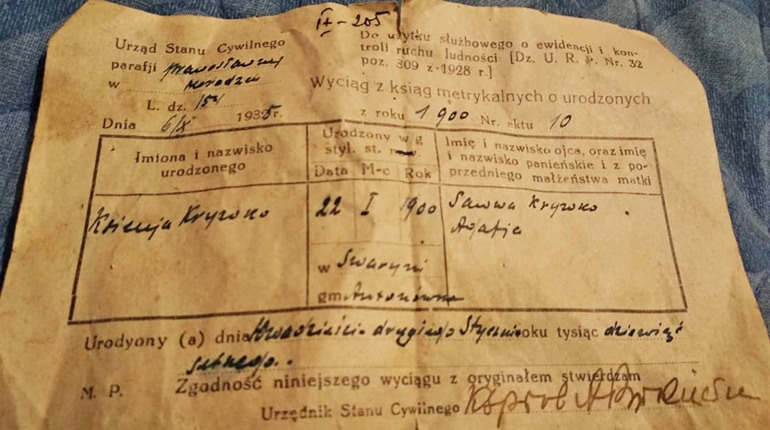 IX-205
Urząd Stanu Cywilnego
parafji prawosławnej
w
L. dz. 154
Dnia 6/X 1935r.
Do użytku służbowego o ewidencji i kon-
troli ruchu ludności [Dz. U. R. P. Nr. 32
poz. 309 z 1928 r.]
Wyciąg z ksiąg metrykalnych o urodzonych
z roku 1900 Nr. aktu 10
Imiona i nazwisko
urodzonego
Urodzony w g
styl. st. now.
Data M-c Rok
Imię i nazwisko ojca, oraz imię
i nazwisko panieńskie i z po-
przedniego małżeństwa matki
Ksienja Kryzoko
22 I 1900
Sawwa Kryzoko
Agafja
w Swaryni
gm. Antonówna
Urodyony (a) dnia dwadzieścia drugiego Stycznia roku tysiąc dziewięć
setnego.
M. P. Zgodność niniejszego wyciągu z oryginałem stwierdzam
Urzędnik Stanu Cywilnego